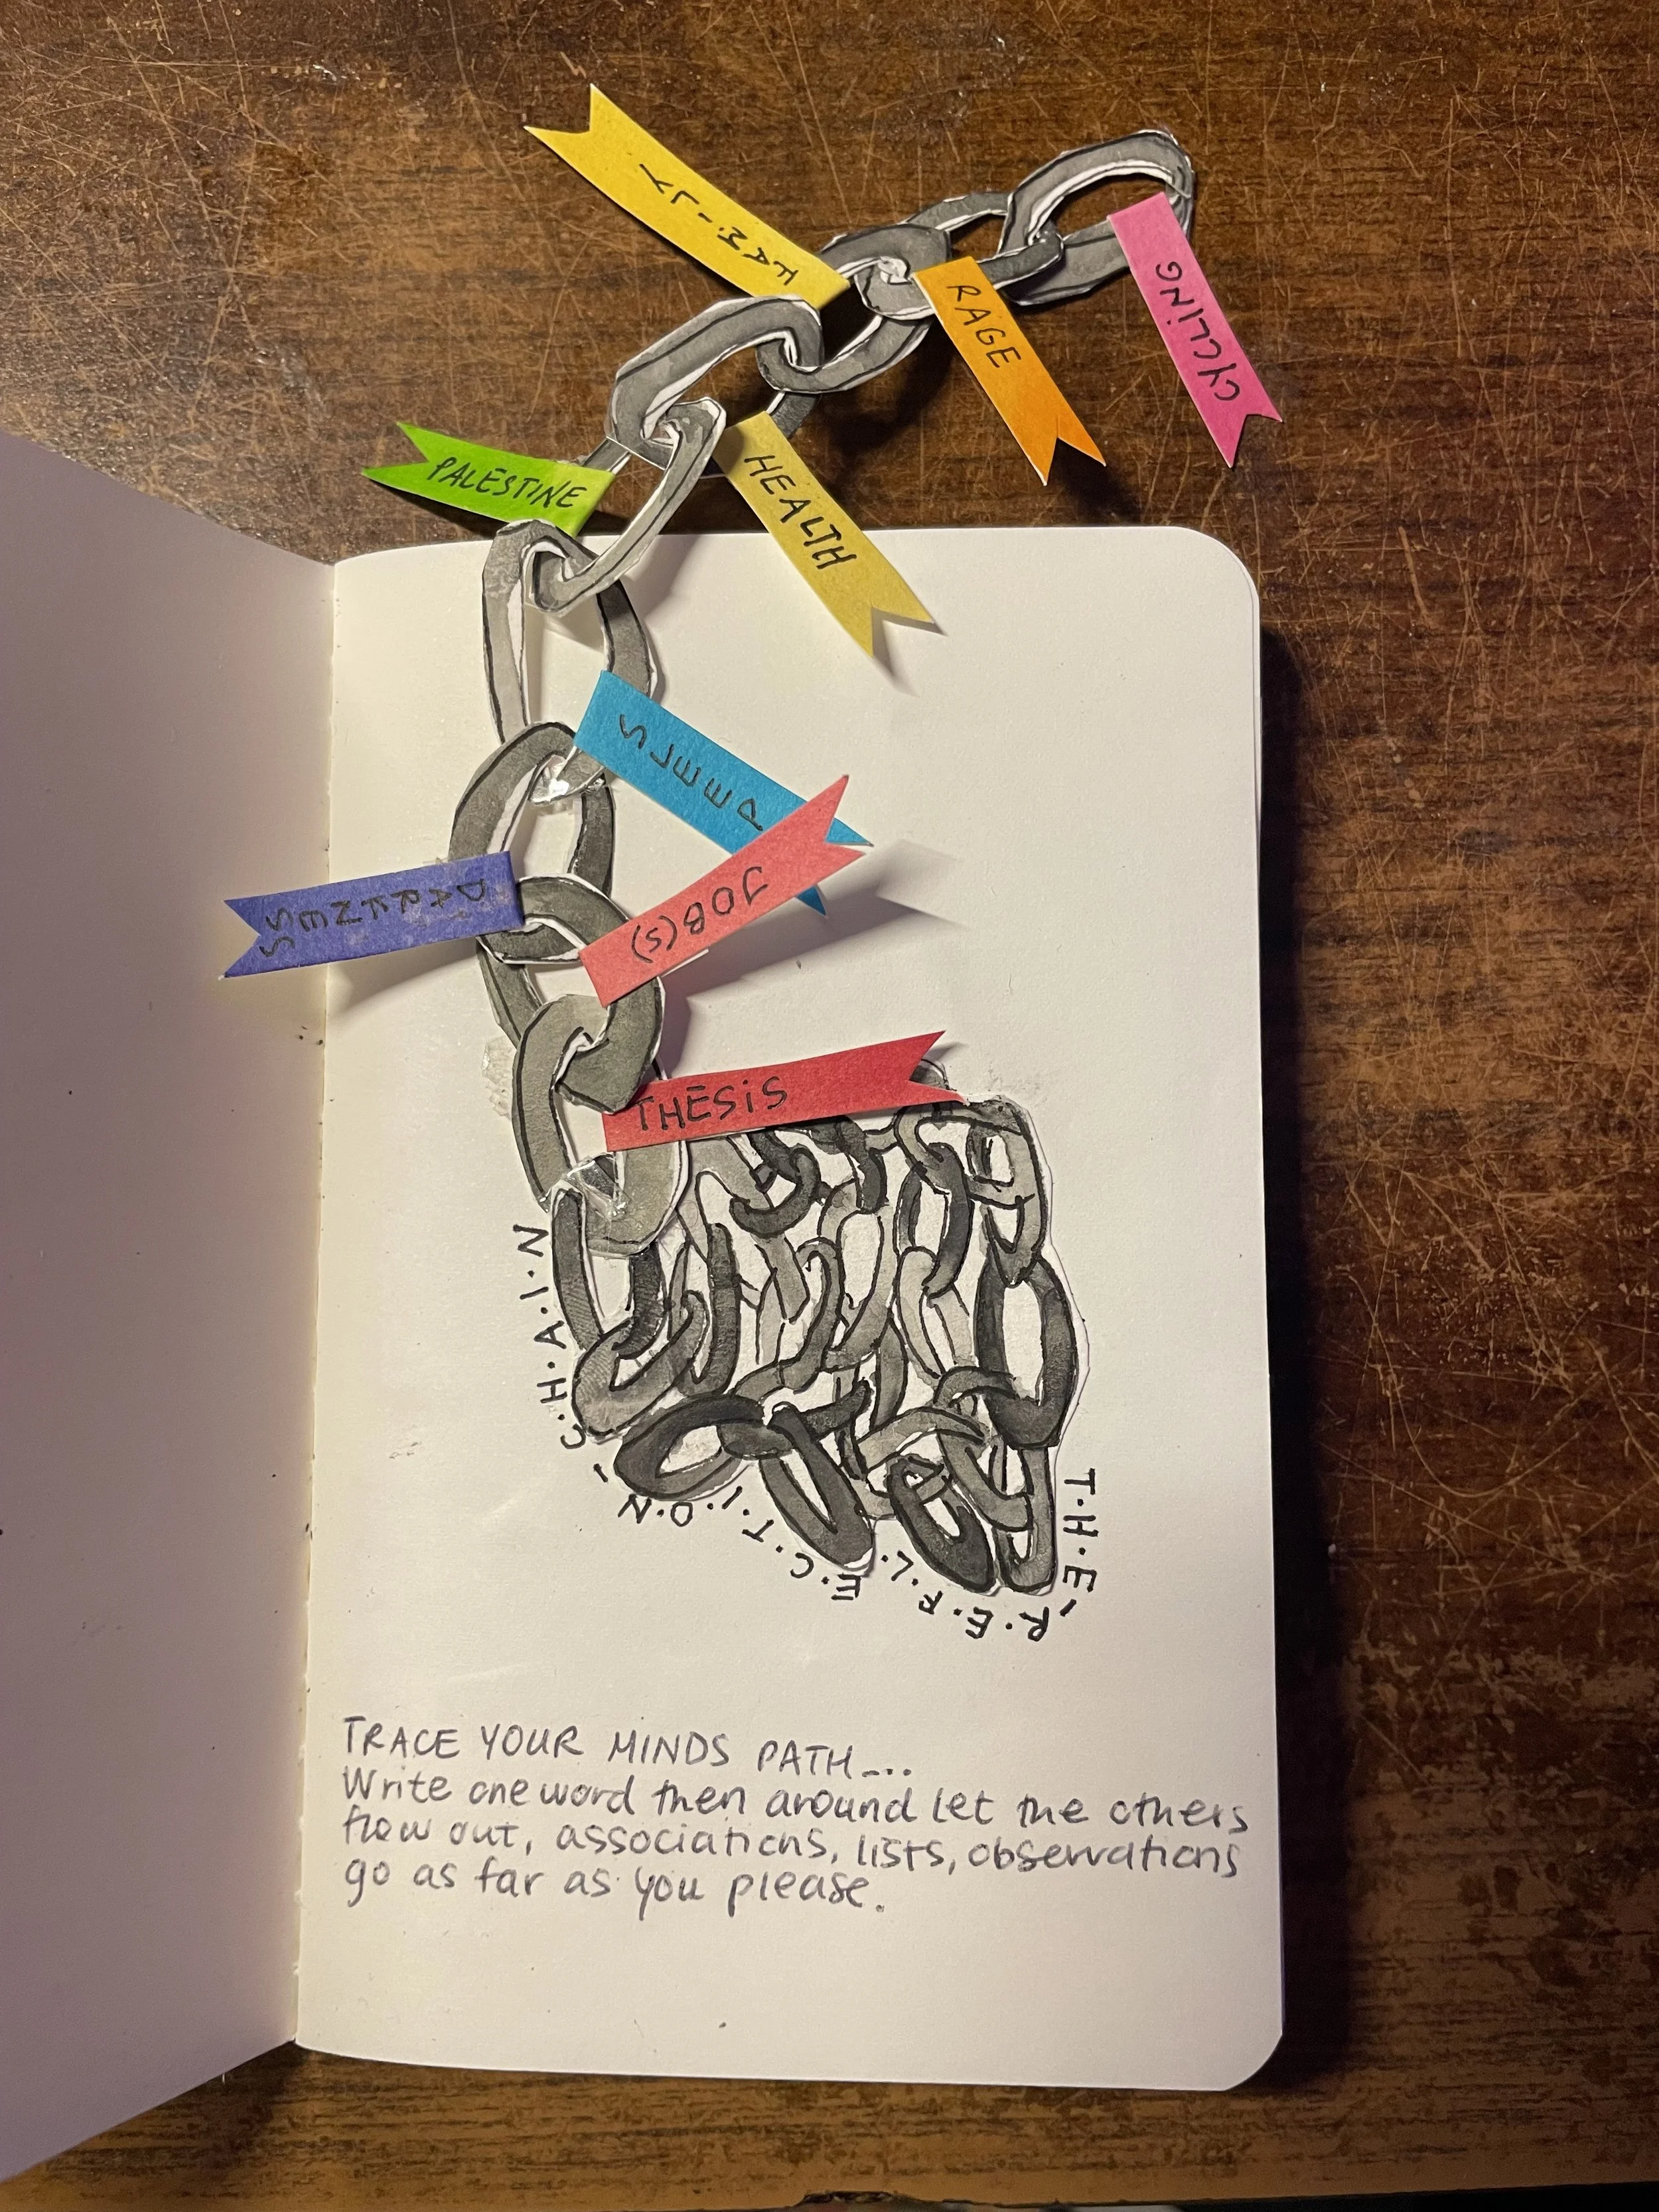 FAM·I·LY
CYCLING
RAGE
PALESTINE
HEALTH
SLEEP
JOB(S)
DARKNESS
THESIS
T·H·E-R·E·F·L·E·C·T·I·O·N-C·H·A·I·N
TRACE YOUR MINDS PATH...
Write one word then around let the others
flow out, associations, lists, observations
go as far as you please.